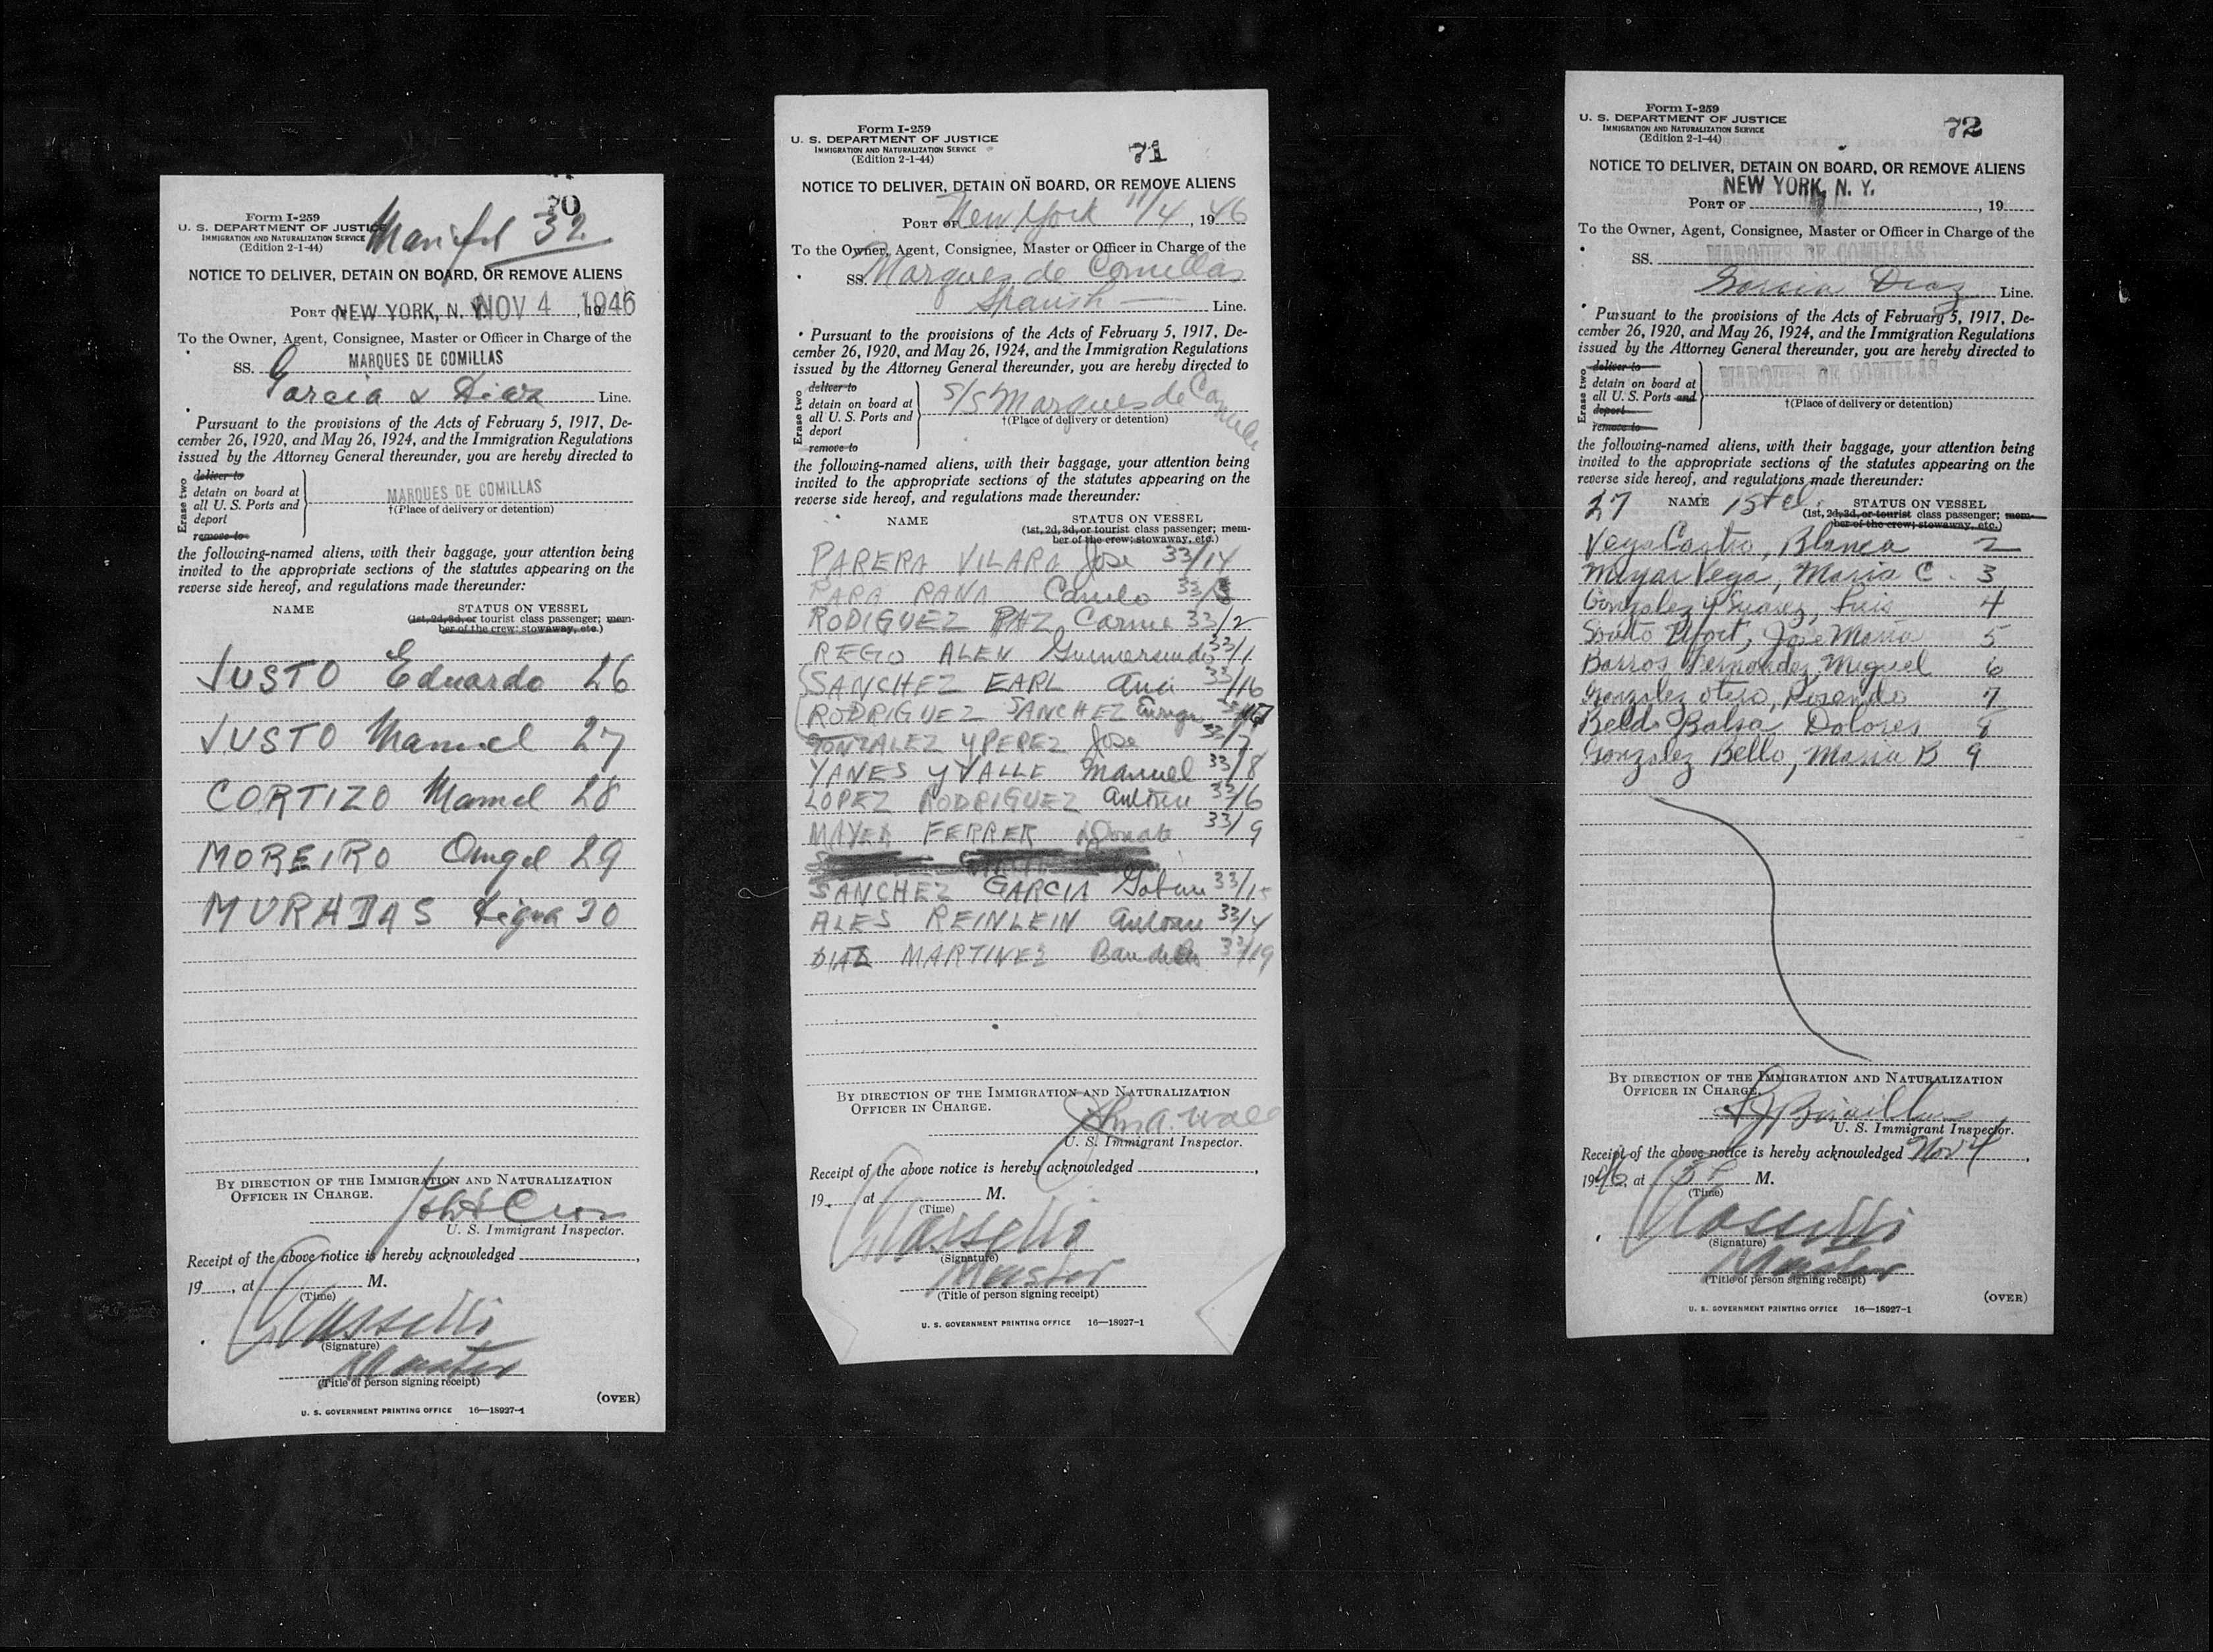 70
Form I-259
U. S. DEPARTMENT OF JUSTICE
IMMIGRATION AND NATURALIZATION SERVICE
(Edition 2-1-44)
Manifest 32
NOTICE TO DELIVER, DETAIN ON BOARD, OR REMOVE ALIENS
PORT OF NEW YORK, N. Y. NOV 4 1946
To the Owner, Agent, Consignee, Master or Officer in Charge of the
SS. MARQUES DE COMILLAS
Garcia & Diaz Line.
Pursuant to the provisions of the Acts of February 5, 1917, De-
cember 26, 1920, and May 26, 1924, and the Immigration Regulations
issued by the Attorney General thereunder, you are hereby directed to
Erase two
deliver to
detain on board at
all U. S. Ports and
deport
remove to
MARQUES DE COMILLAS
†(Place of delivery or detention)
the following-named aliens, with their baggage, your attention being
invited to the appropriate sections of the statutes appearing on the
reverse side hereof, and regulations made thereunder:
NAME STATUS ON VESSEL
(1st, 2d, 3d, or tourist class passenger; mem-
ber of the crew; stowaway, etc.)
JUSTO Eduardo 26
JUSTO Manuel 27
CORTIZO Manuel 28
MOREIRO Angel 29
MURADAS 30
BY DIRECTION OF THE IMMIGRATION AND NATURALIZATION
OFFICER IN CHARGE.
U. S. Immigrant Inspector.
Receipt of the above notice is hereby acknowledged
19 , at M.
(Time)
(Signature)
Master
(Title of person signing receipt)
(OVER)
U. S. GOVERNMENT PRINTING OFFICE 16—18927-1
Form I-259
U. S. DEPARTMENT OF JUSTICE
IMMIGRATION AND NATURALIZATION SERVICE
(Edition 2-1-44)
71
NOTICE TO DELIVER, DETAIN ON BOARD, OR REMOVE ALIENS
PORT OF New York 11/4 , 1946
To the Owner, Agent, Consignee, Master or Officer in Charge of the
SS. Marques de Comillas
Spanish Line.
Pursuant to the provisions of the Acts of February 5, 1917, De-
cember 26, 1920, and May 26, 1924, and the Immigration Regulations
issued by the Attorney General thereunder, you are hereby directed to
Erase two
deliver to
detain on board at
all U. S. Ports and
deport
remove to
S/S Marques de Comillas
†(Place of delivery or detention)
the following-named aliens, with their baggage, your attention being
invited to the appropriate sections of the statutes appearing on the
reverse side hereof, and regulations made thereunder:
NAME STATUS ON VESSEL
(1st, 2d, 3d, or tourist class passenger; mem-
ber of the crew; stowaway, etc.)
PARERA VILARA Jose 33/14
PARA RANA 33/3
RODIGUEZ PAZ Carme 33/2
REGO ALEN Gumersindo 33/1
SANCHEZ EARL Ana 33/16
RODRIGUEZ SANCHEZ 33/17
GONZALEZ Y PEREZ Jose 33/7
YANES y VALLE Manuel 33/8
LOPEZ RODRIGUEZ 33/6
MAYER FERRER Donato 33/9
SANCHEZ GARCIA 33/15
ALES REINLEIN 33/4
DIAZ MARTINEZ 33/19
BY DIRECTION OF THE IMMIGRATION AND NATURALIZATION
OFFICER IN CHARGE.
John A. Wall
U. S. Immigrant Inspector.
Receipt of the above notice is hereby acknowledged ,
19 , at M.
(Time)
(Signature)
Master
(Title of person signing receipt)
U. S. GOVERNMENT PRINTING OFFICE 16—18927-1
Form I-259
U. S. DEPARTMENT OF JUSTICE
IMMIGRATION AND NATURALIZATION SERVICE
(Edition 2-1-44)
72
NOTICE TO DELIVER, DETAIN ON BOARD, OR REMOVE ALIENS
PORT OF NEW YORK, N. Y. , 19
To the Owner, Agent, Consignee, Master or Officer in Charge of the
SS. MARQUES DE COMILLAS
Garcia Diaz Line.
Pursuant to the provisions of the Acts of February 5, 1917, De-
cember 26, 1920, and May 26, 1924, and the Immigration Regulations
issued by the Attorney General thereunder, you are hereby directed to
Erase two
deliver to
detain on board at
all U. S. Ports and
deport
remove to
MARQUES DE COMILLAS
†(Place of delivery or detention)
the following-named aliens, with their baggage, your attention being
invited to the appropriate sections of the statutes appearing on the
reverse side hereof, and regulations made thereunder:
27 NAME 1st cl. STATUS ON VESSEL
(1st, 2d, 3d, or tourist class passenger; mem-
ber of the crew; stowaway, etc.)
Vega Castro, Blanca 2
Meyar Vega, Maria C. 3
Gonzalez y Suarez, Luis 4
Jose Maria 5
Barros Fernandez, Miguel 6
Gonzalez Otero, Rosendo 7
Balsa Dolores 8
Gonzalez Bello, Maria B 9
BY DIRECTION OF THE IMMIGRATION AND NATURALIZATION
OFFICER IN CHARGE.
U. S. Immigrant Inspector.
Receipt of the above notice is hereby acknowledged Nov 4 ,
1946, at M.
(Time)
(Signature)
Master
(Title of person signing receipt)
(OVER)
U. S. GOVERNMENT PRINTING OFFICE 16—18927-1